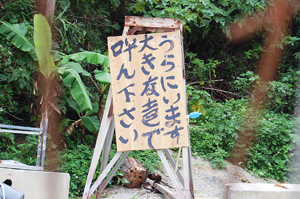 うらにいます
大きな声で
呼んで下さい